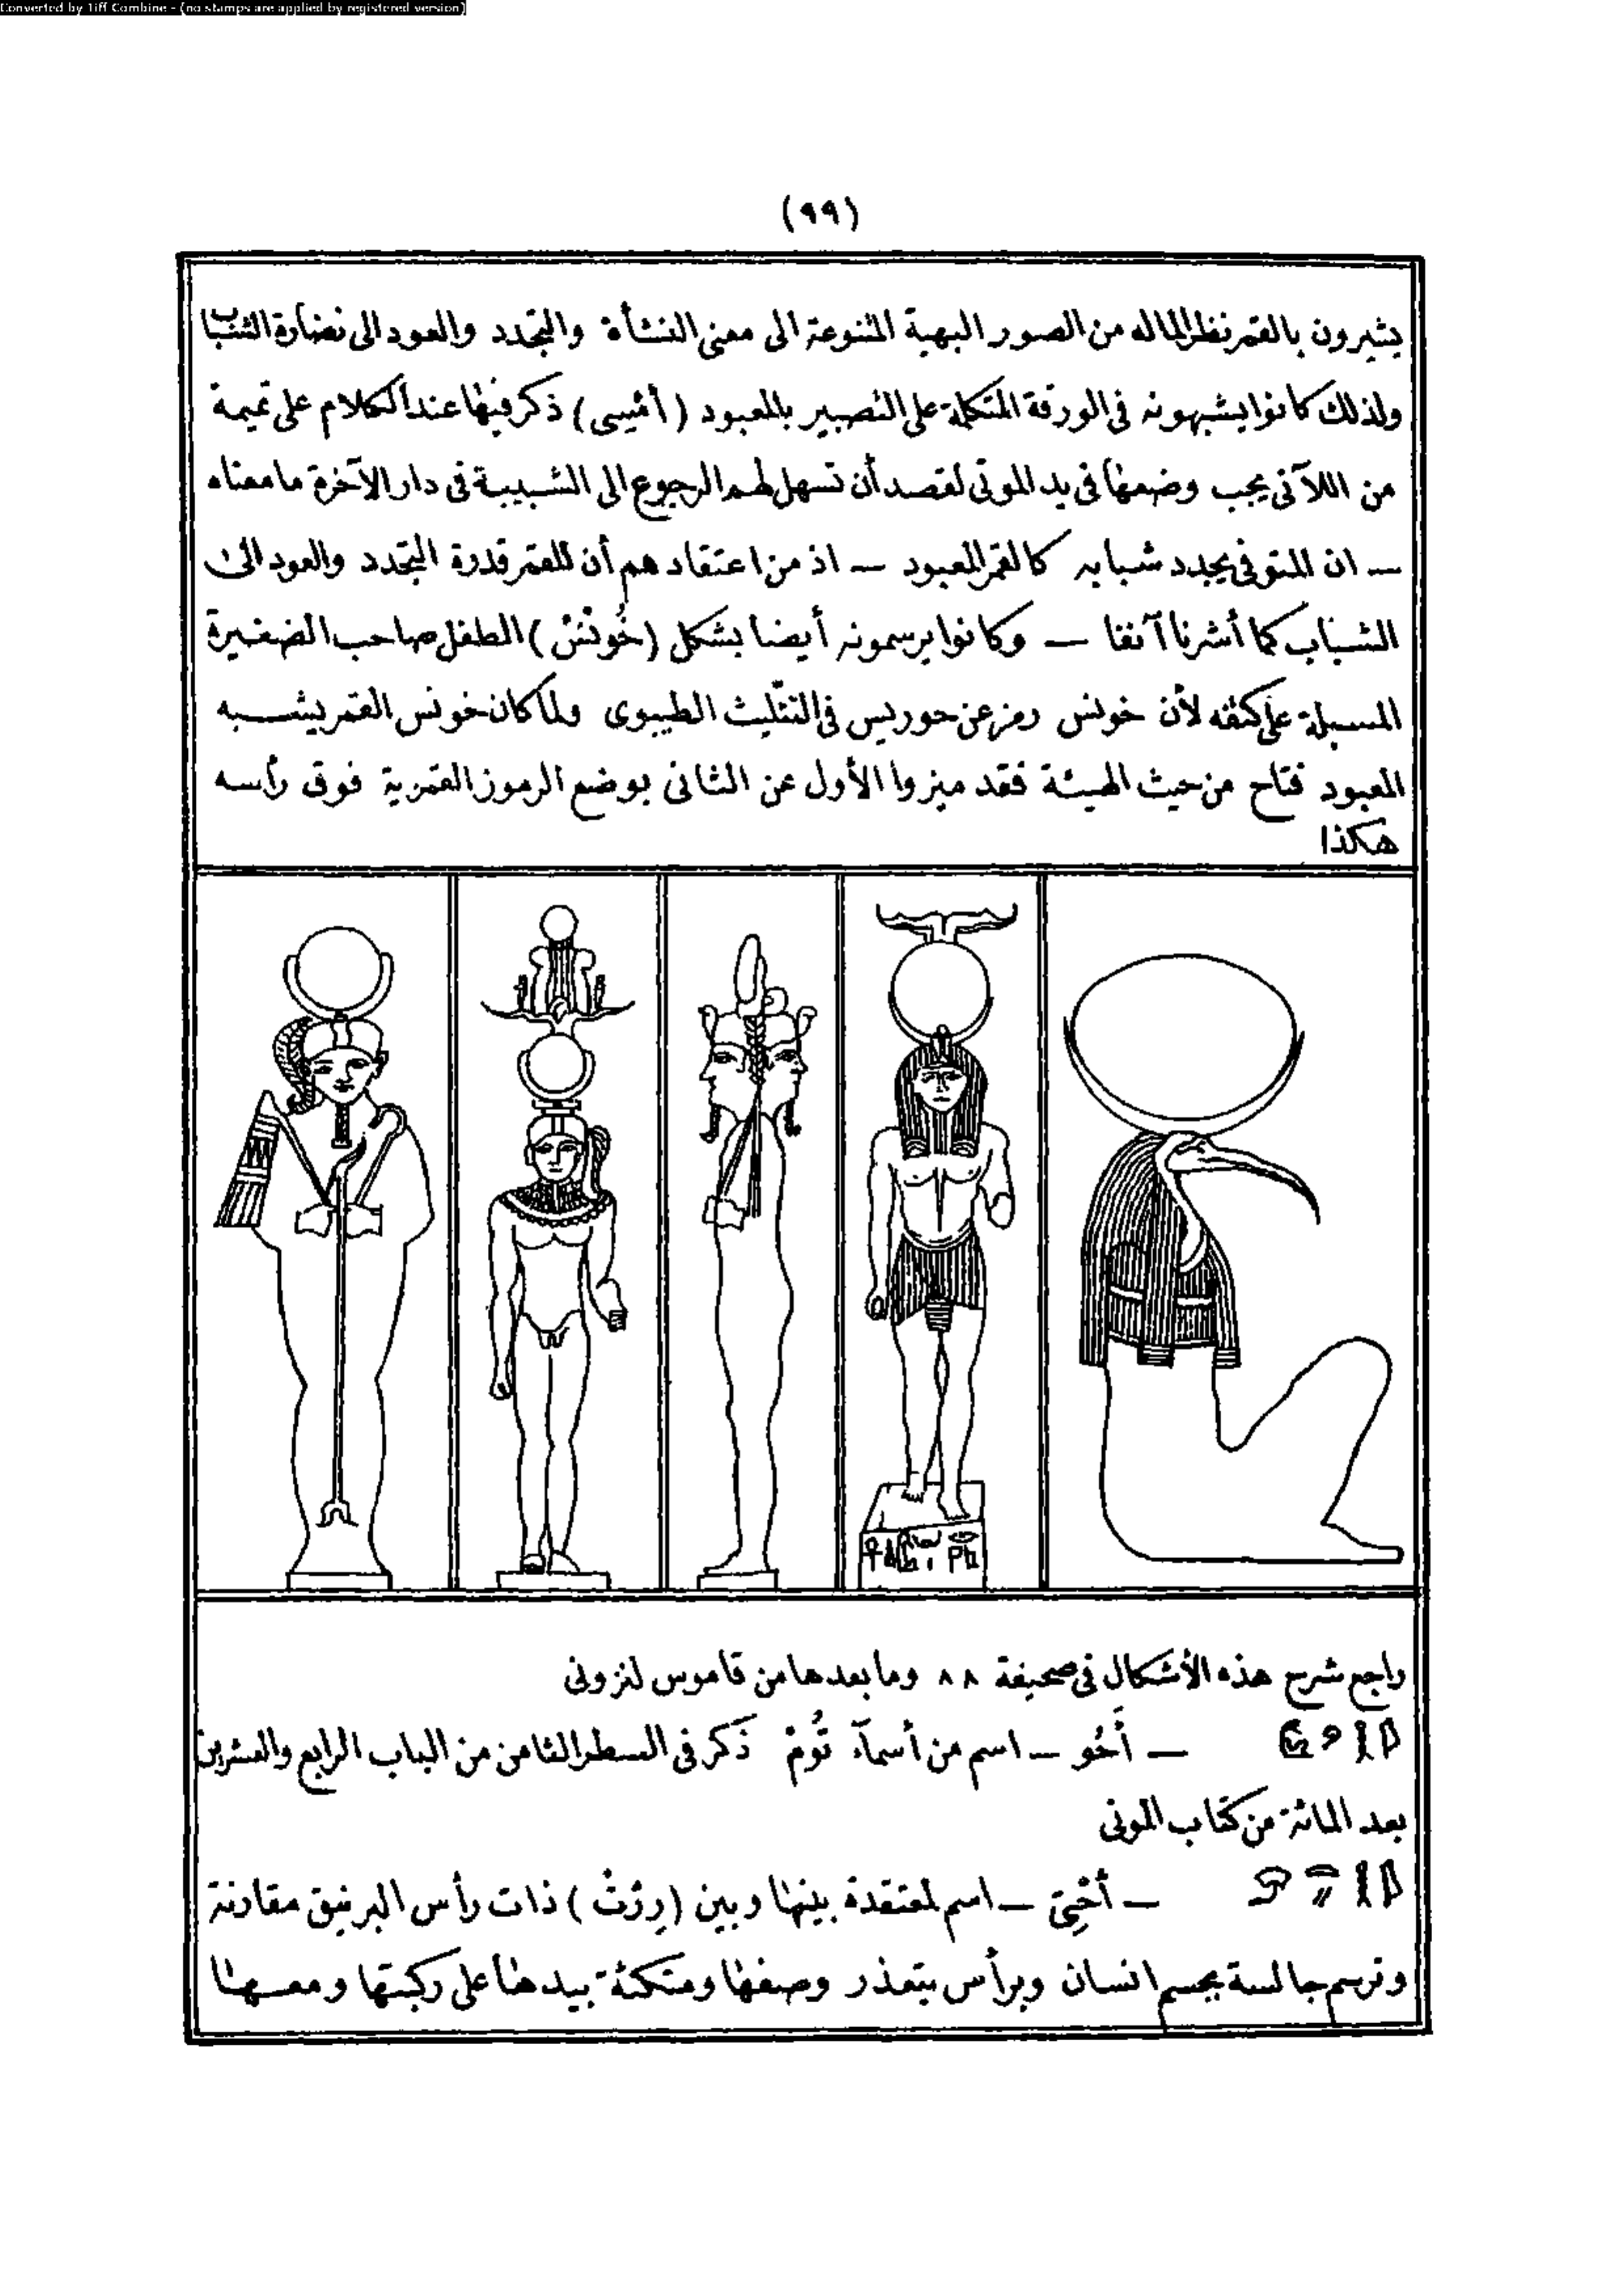 Converted by Tiff Combine - (no stamps are applied by registered version)
(٩٩)
يشيرون بالقمر نظرا لماله من الصور البهية المتنوعة الى معنى النشأة والتجدد والعود الى نضارة الشباب
ولذلك كانوا يشبهونه فى الورقة المتكلمة على التصبير بالمعبود (أمْسِى) ذكر فيها عند الكلام على تميمة
من اللآتى يجب وضعها فى يد الموتى لقصد أن تسهل لهم الرجوع الى الشبيبة فى دار الآخرة ما معناه
— ان المتوفى يجدد شبابه كالقمر المعبود — اذ من اعتقادهم أن للقمر قدرة التجدد والعود الى
الشباب كما أشرنا آنفا — وكانوا يرسمونه أيضا بشكل (خُونْسْ) الطفل صاحب الضفيرة
المسبلة على كتفه لأن خونس رمز عن حوريس فى التثليث الطيبوى ولما كان خونس القمر يشبه
المعبود فتاح من حيث الهيئة فقد ميزوا الأول عن الثانى بوضع الرموز القمرية فوق رأسه
هكذا
راجع شرح هذه الأشكال فى صحيفة ٨٨ وما بعدها من قاموس لنزونى
— أَخُو — اسم من أسمآء تُومْ ذكر فى السطر الثامن من الباب الرابع والعشرين
بعد المائة من كتاب الموتى
— أخْتِى — اسم لمعتقدة بينها وبين (رِرْتْ) ذات رأس البرنيق مقارنة
وترسم جالسة بجسم انسان وبرأس يتعذر وصفها ومتكئة بيدها على ركبتها ومعها